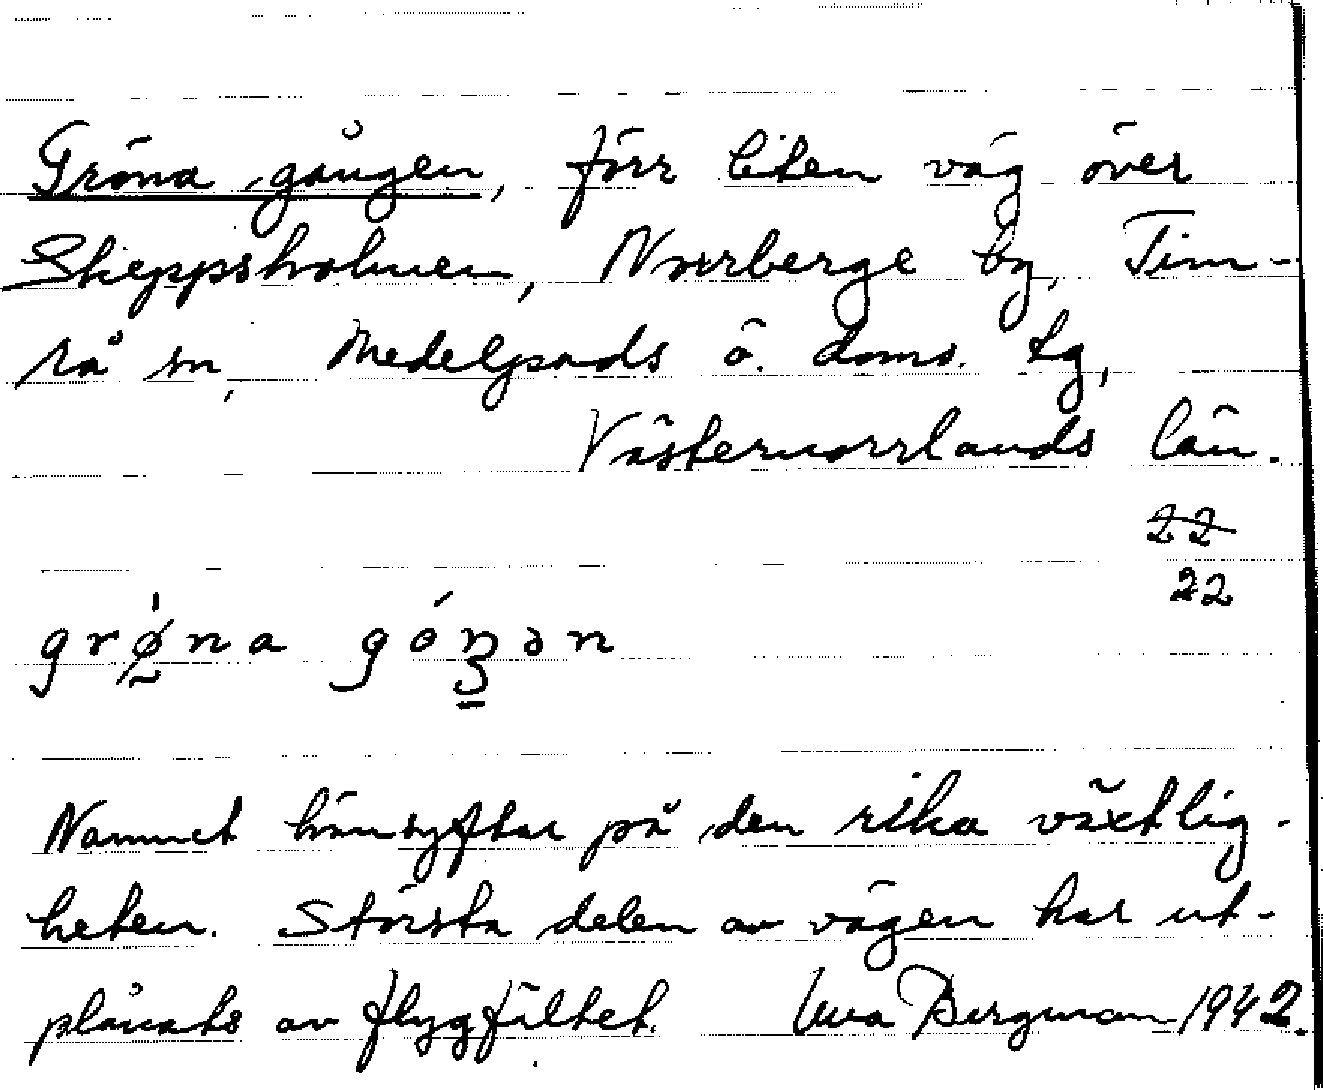 Gröna gången, förr liten väg över
Skeppsholmen, Norrberge by, Tim-
rå sn, Medelpads ö. doms. tg,
Västernorrlands län.
22
22
grǿ̰na góŋən
Namnet hänsyftar på den rika växtlig-
heten. Största delen av vägen har ut-
plånats av flygfältet. Bergman 1942.